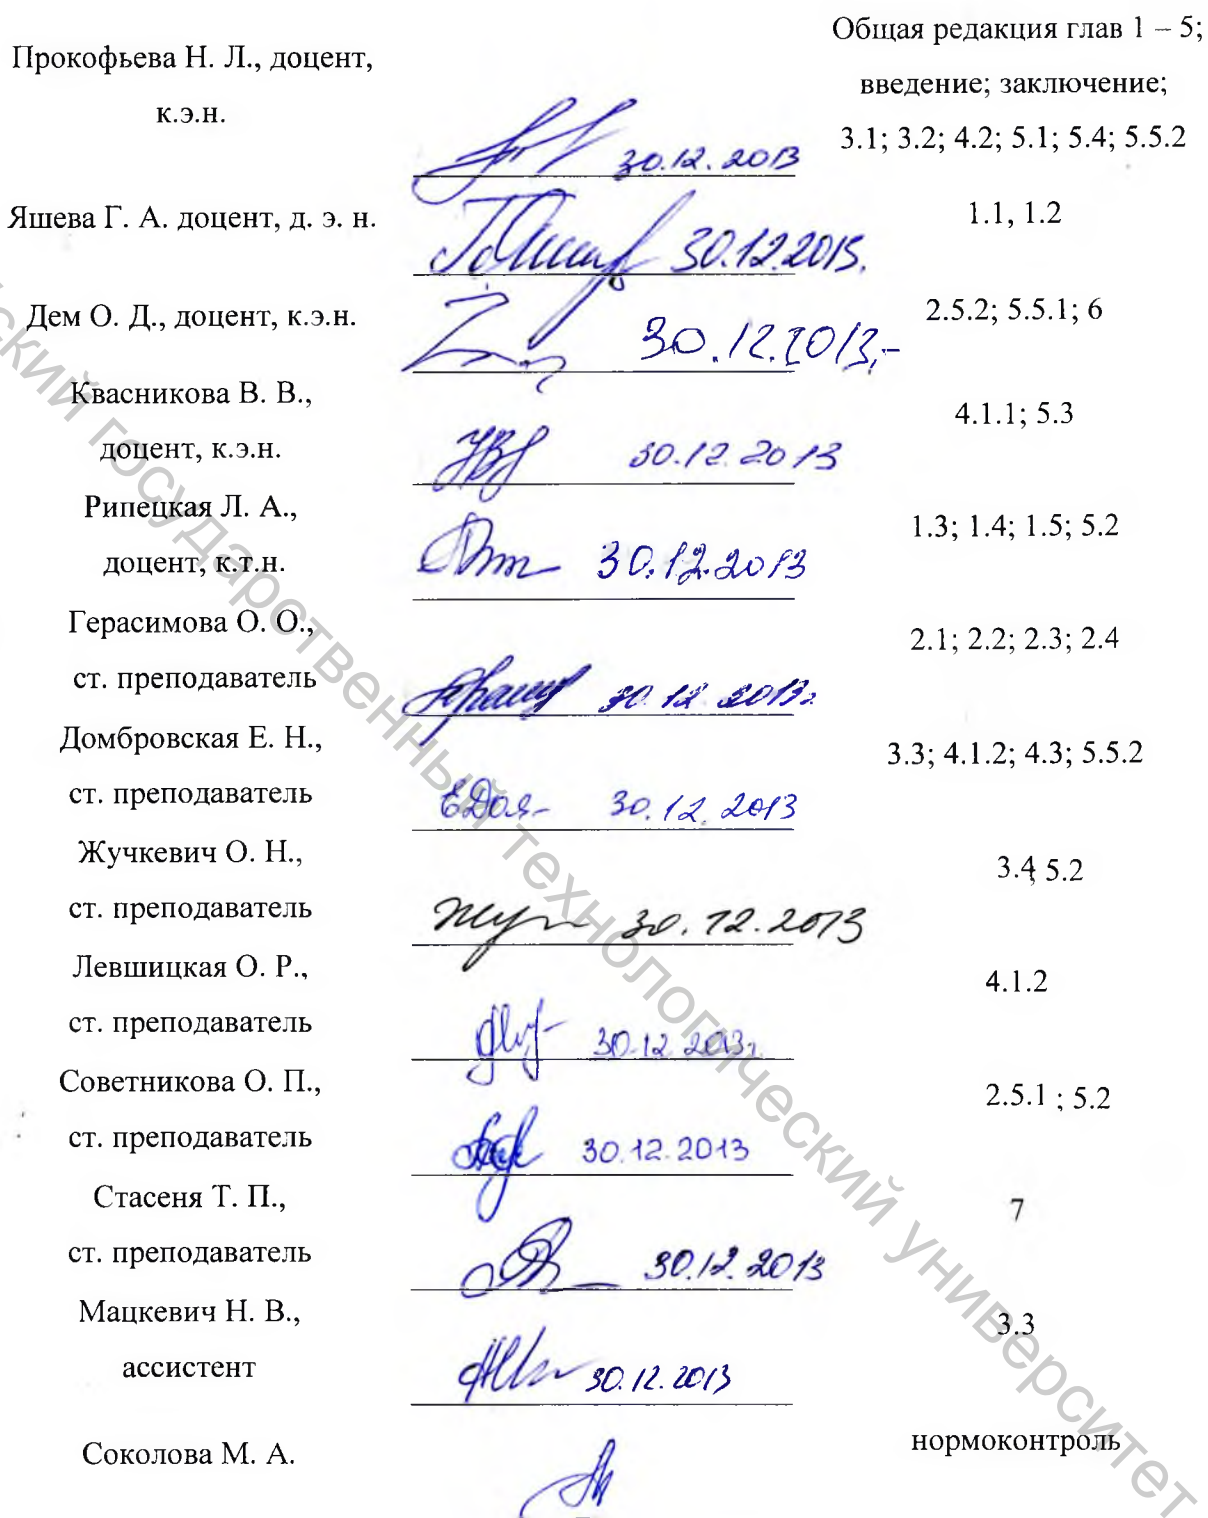 Прокофьева Н. Л., доцент,
к.э.н.
30.12.2013
Общая редакция глав 1 – 5;
введение; заключение;
3.1; 3.2; 4.2; 5.1; 5.4; 5.5.2
Яшева Г. А. доцент, д. э. н.
30.12.2013.
1.1, 1.2
Дем О. Д., доцент, к.э.н.
30.12.2013
2.5.2; 5.5.1; 6
Квасникова В. В.,
доцент, к.э.н.
30.12.2013
4.1.1; 5.3
Рипецкая Л. А.,
доцент, к.т.н.
30.12.2013
1.3; 1.4; 1.5; 5.2
Герасимова О. О.,
ст. преподаватель
30.12 2013г
2.1; 2.2; 2.3; 2.4
Домбровская Е. Н.,
ст. преподаватель
30.12.2013
3.3; 4.1.2; 4.3; 5.5.2
Жучкевич О. Н.,
ст. преподаватель
30.12.2013
3.4; 5.2
Левшицкая О. Р.,
ст. преподаватель
30.12 2013г
4.1.2
Советникова О. П.,
ст. преподаватель
30.12.2013
2.5.1 ; 5.2
Стасеня Т. П.,
ст. преподаватель
30.12.2013
7
Мацкевич Н. В.,
ассистент
30.12.2013
3.3
Соколова М. А.
нормоконтроль
ский государственный технологический университет